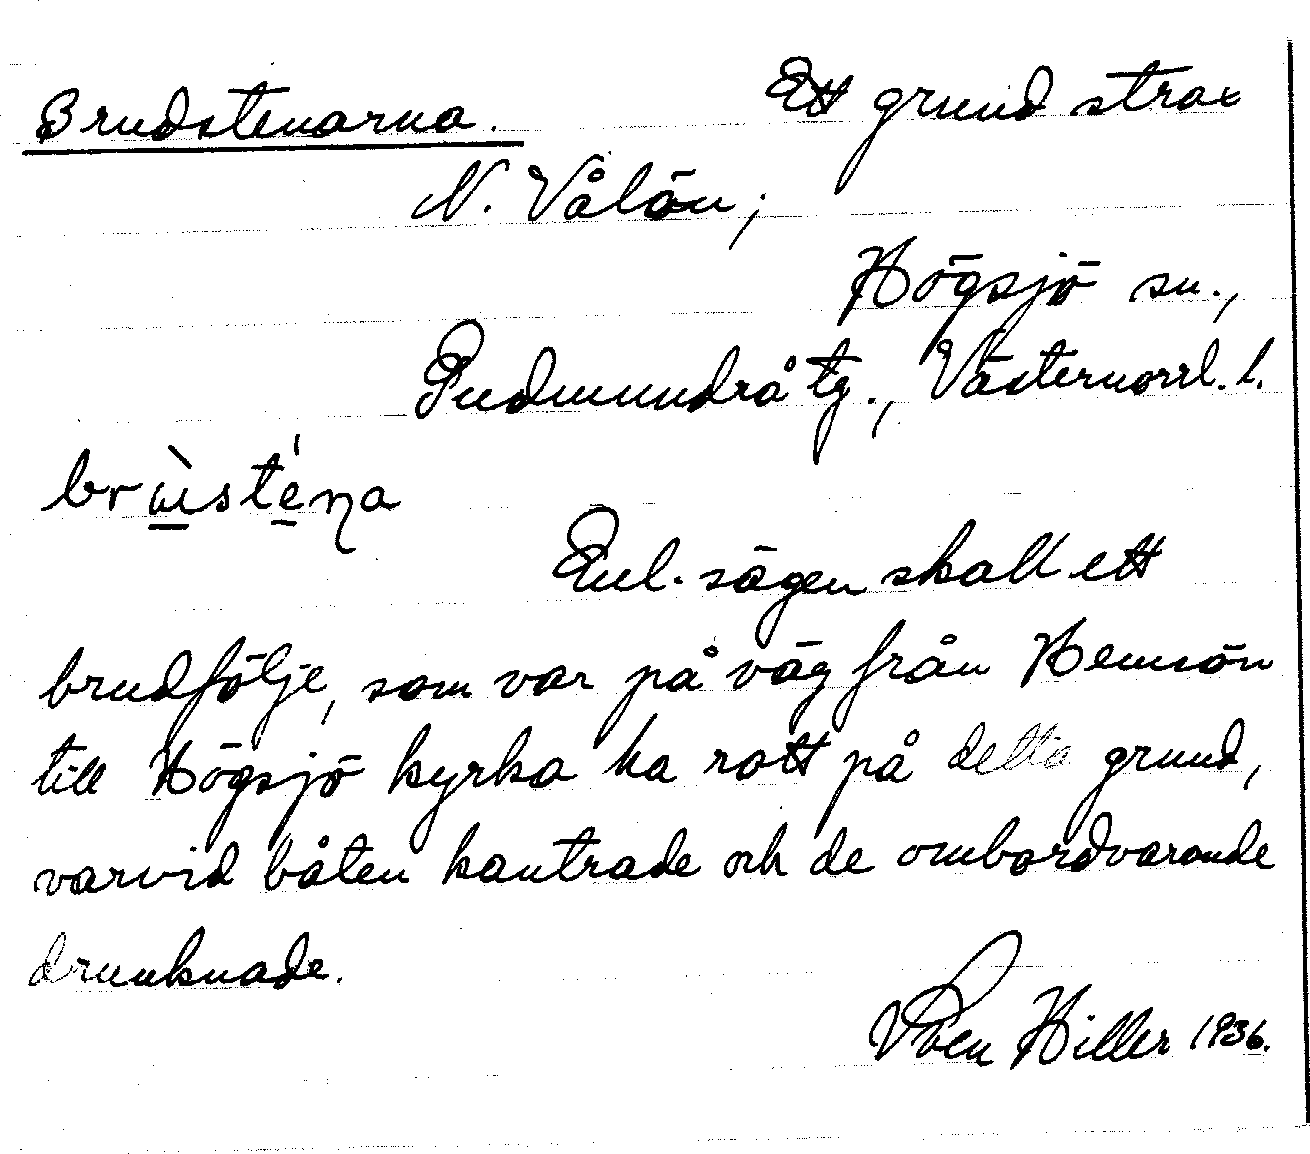 Brudstenarna. Ett grund strax
N. Vålön;
Högsjö sn.,
Gudmundrå tg., Västernorrl. l.
brùsténa
Enl. sägen skall ett
brudfölje, som var på väg från Hemsön
till Högsjö kyrka ha rott på detta grund,
varvid båten kantrade och de ombordvarande
drunknade.
Sven Hiller 1936.